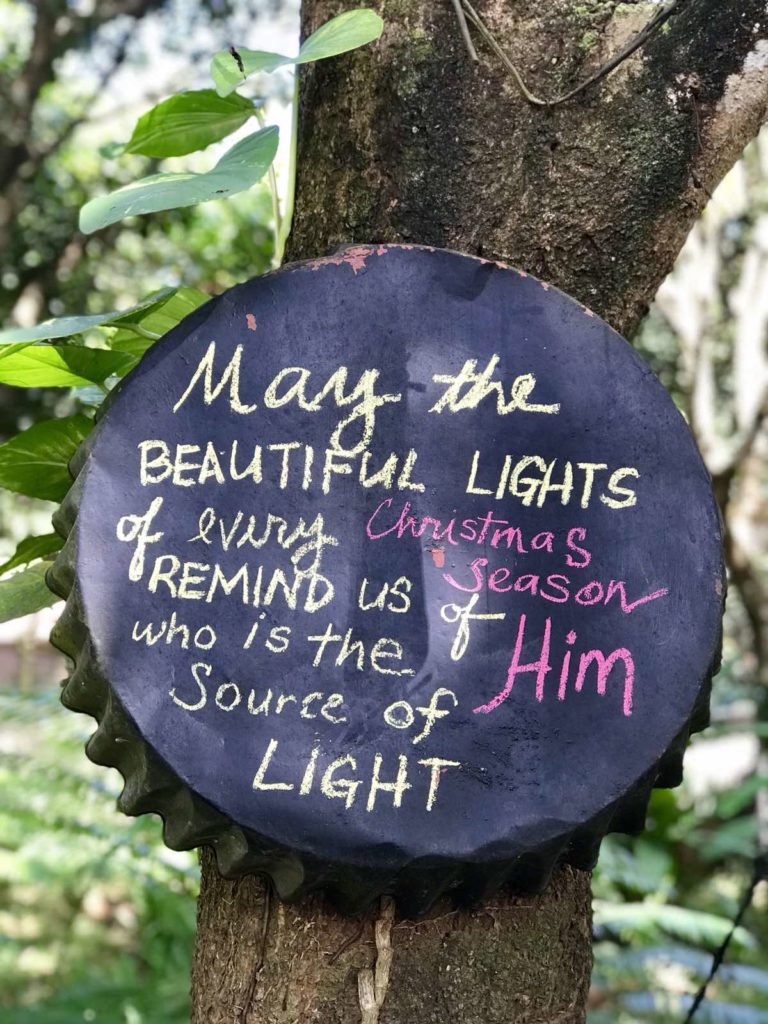 May the
BEAUTIFUL LIGHTS
of every Christmas
season
REMIND us of
Him
who is the
Source of
LIGHT